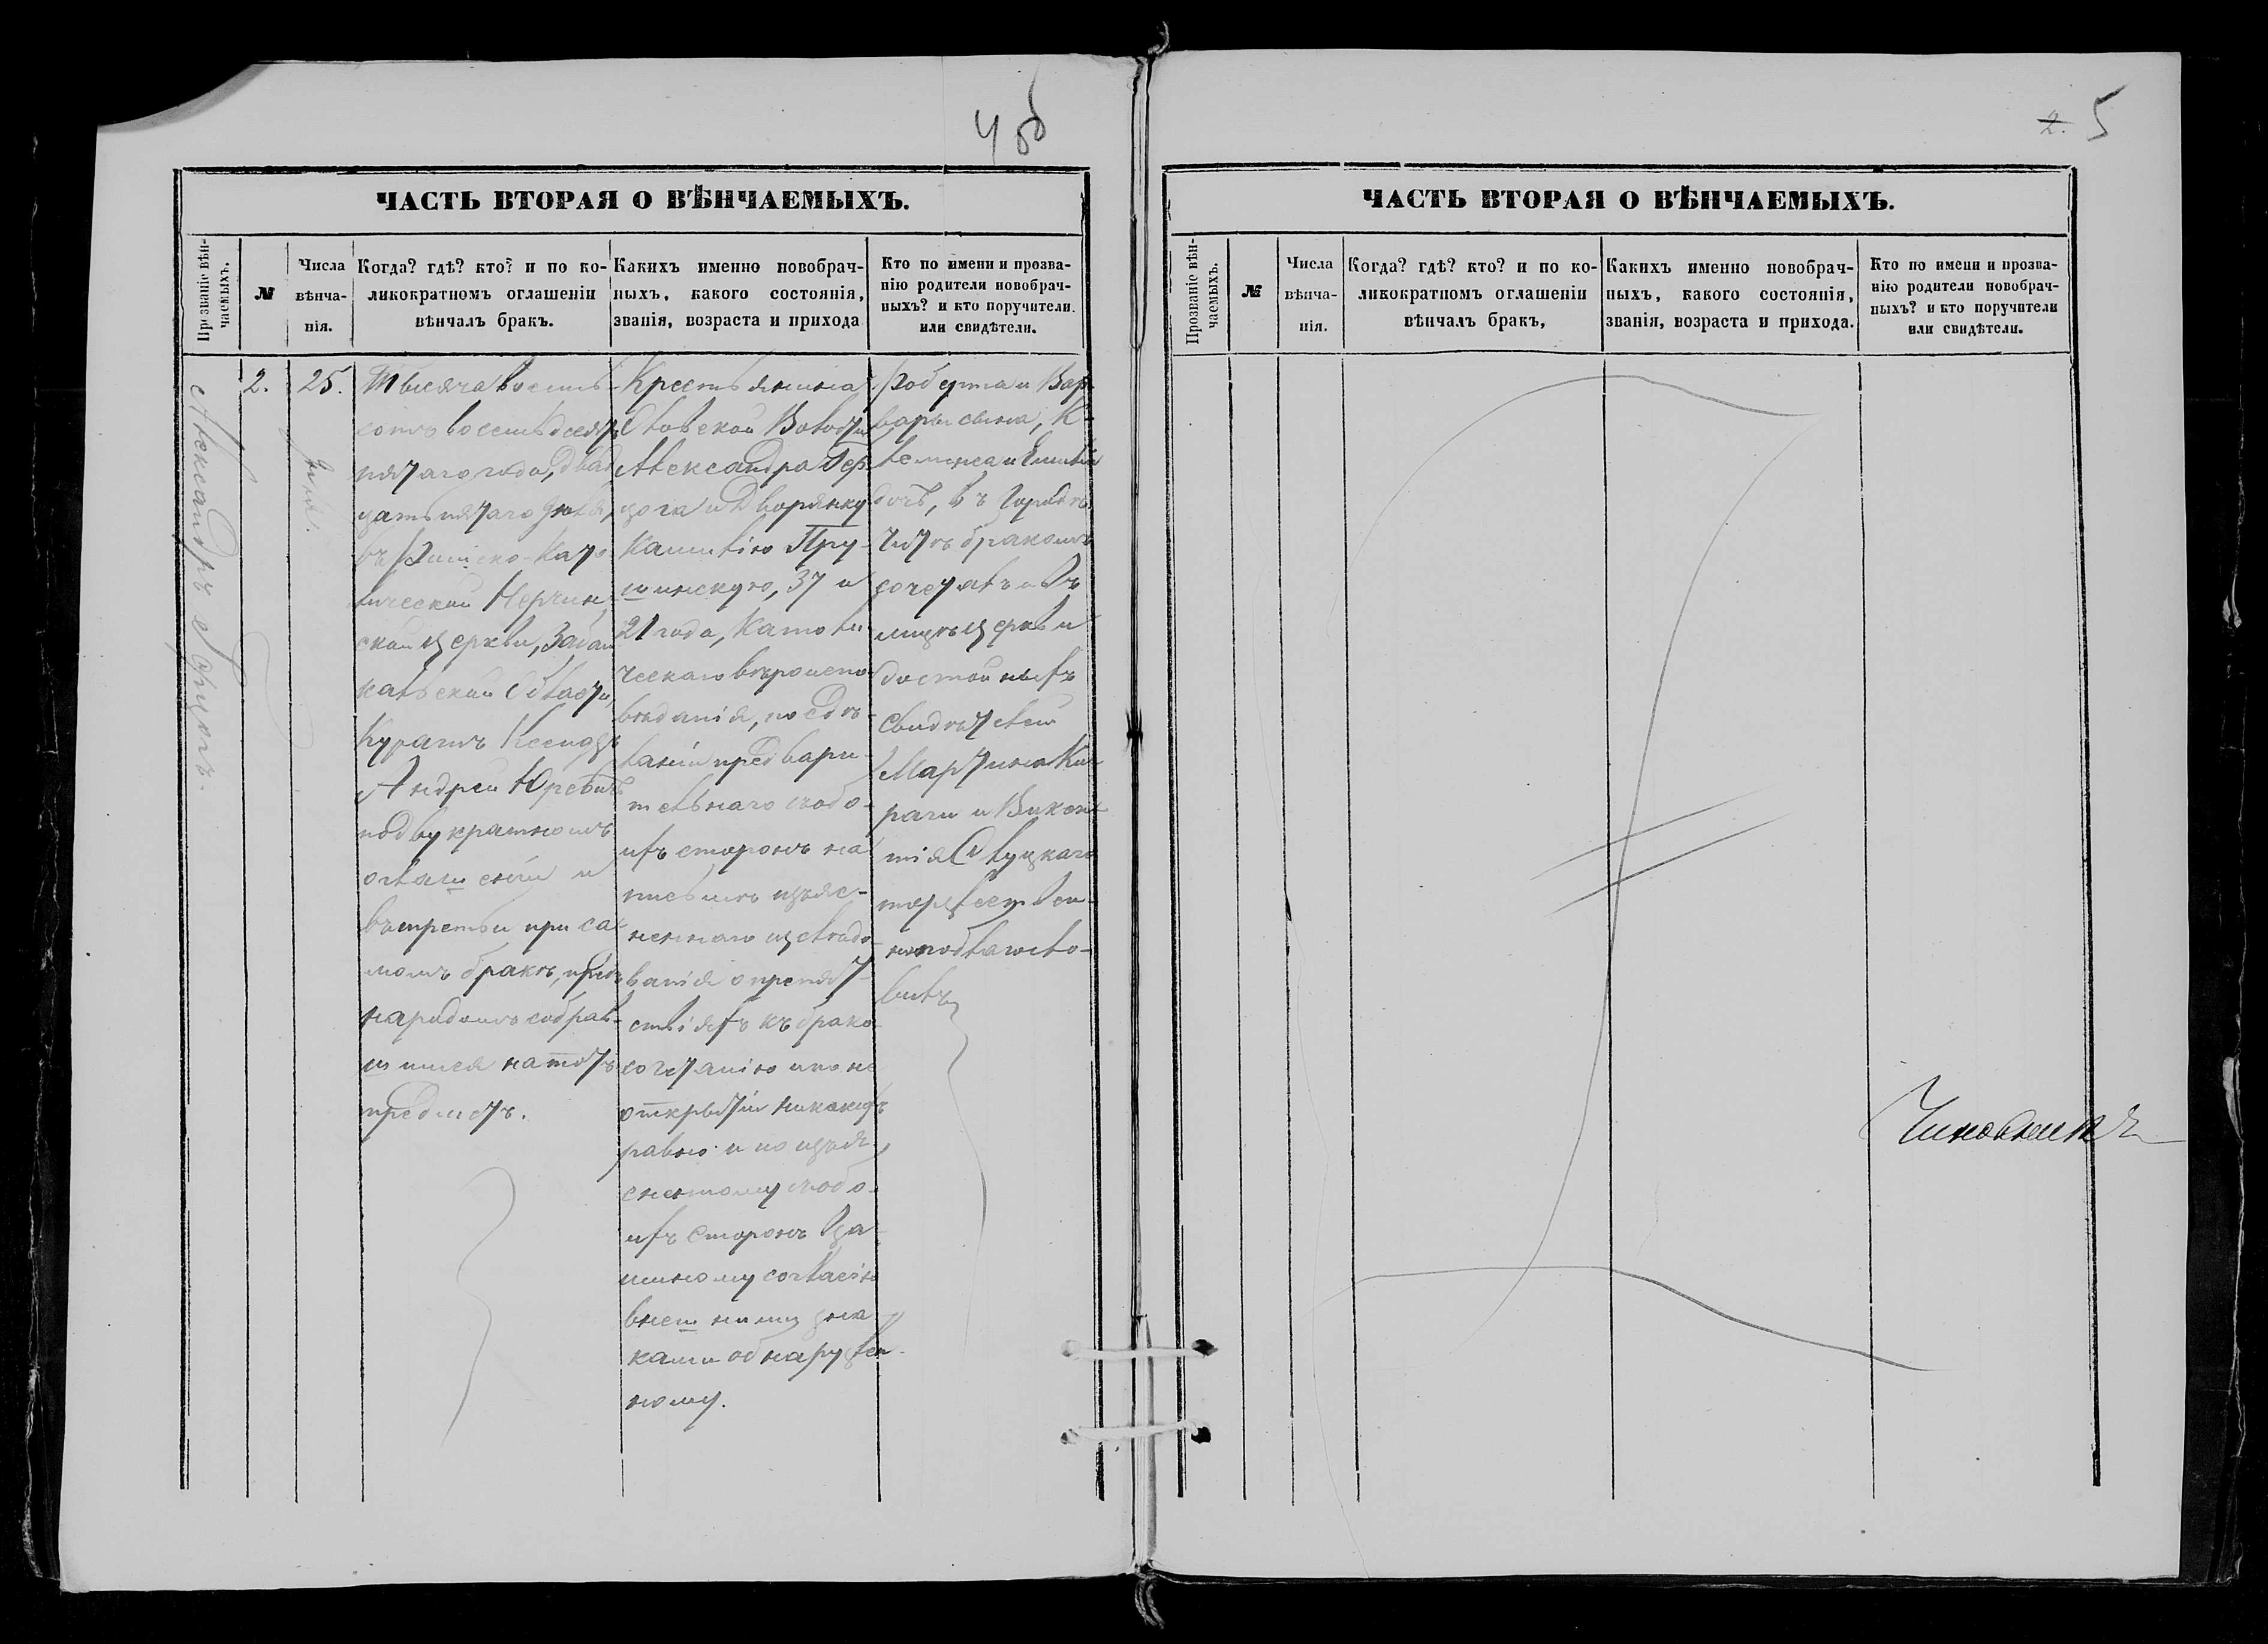 4 об
ЧАСТЬ ВТОРАЯ О ВѢНЧАЕМЫХЪ.
Прозваніе вѣн-
чаемыхъ.
№
Числа
вѣнча-
нія.
Когда? гдѣ? кто? и по ко-
ликократномъ оглашеніи
вѣнчалъ бракъ.
Какихъ именно новобрач-
ныхъ, какого состоянія,
званія, возраста и прихода
Кто по имени и прозва-
нію родители новобрач-
ныхъ? и кто поручители
или свидѣтели.
Александръ
2.
25.
Тысяча восемь-
сотъ восемьдесятъ
пятаго года, двад
цать пятаго
въ Римско-Като
лической Нерчин
ской Церкви, Забай
кальской Области,
Куратъ Ксендзъ
Андрей Юревичъ
по двукратномъ
оглашеніи и
въ третьи при са
момъ бракѣ, предъ
народомъ собрав-
шимся на тотъ
предметъ.
Крестьянина
Волости
Александра Гер
цога и Дворянку
Камилію Пру-
шинскую, 37 и
21 года, Католи
ческаго вѣроиспо
вѣданія, по сдѣ-
ланіи предвари-
тельнаго съ обо-
ихъ сторонъ на
письмѣ изъяс-
неннаго изслѣдо
ванія о препят-
ствіяхъ къ брако
сочетанію и по не
открытіи никакихъ
равно и по изъя
сненному съ обо-
ихъ сторонъ вза
имному согласію
внѣшними зна
ками обнаружен-
ному.
Роберта и Вар
вары сына, К-
лемнса и Эмиліи
дочь, въ Городѣ
Читѣ бракомъ
сочеталъ и въ
лицѣ церкви
достойныхъ
свидѣтелей
Мартина Ки
раги и Викен
тія Слуцкаго
торжествен
но поблагосло-
вилъ
2. 5
ЧАСТЬ ВТОРАЯ О ВѢНЧАЕМЫХЪ.
Прозваніе вѣн-
чаемыхъ.
№
Числа
вѣнча-
нія.
Когда? гдѣ? кто? и по ко-
ликократномъ оглашеніи
вѣнчалъ бракъ,
Какихъ именно новобрач-
ныхъ, какого состоянія,
званія, возраста и прихода.
Кто по имени и прозва-
нію родители новобрач-
ныхъ? и кто поручители
или свидѣтели.
Чиновникъ